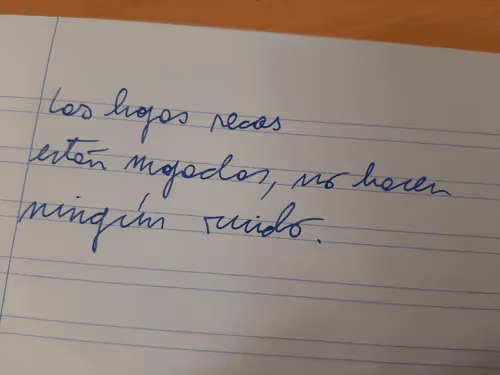 Las hojas secas
están mojadas, no hacen
ningún ruido.